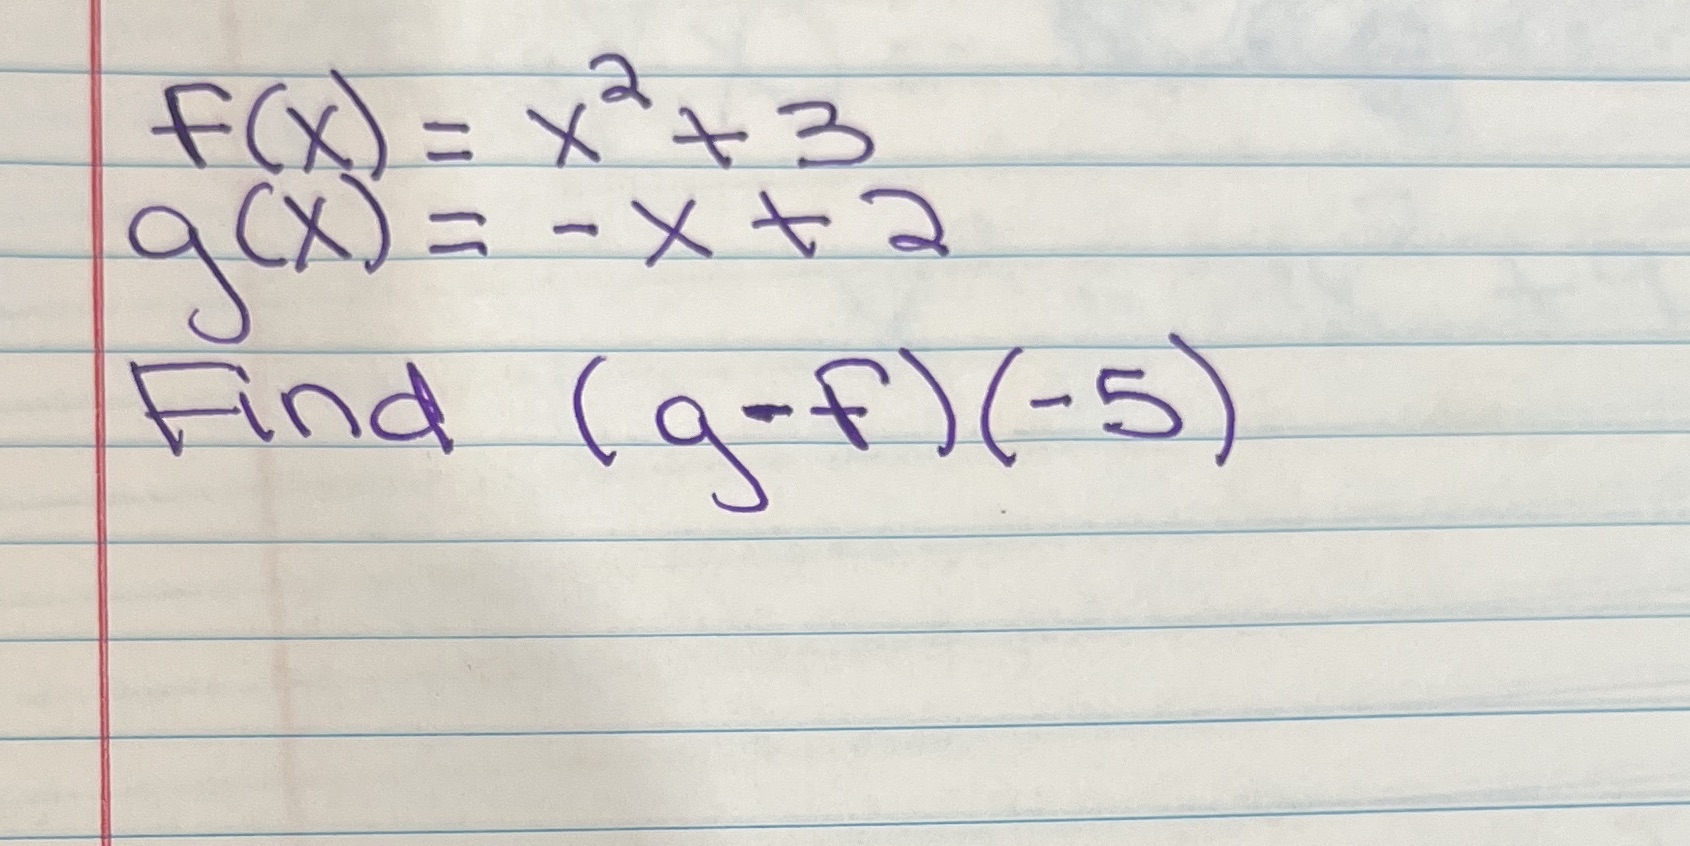 f(x) = x² + 3
g(x) = - x + 2
Find (g-f)(-5)